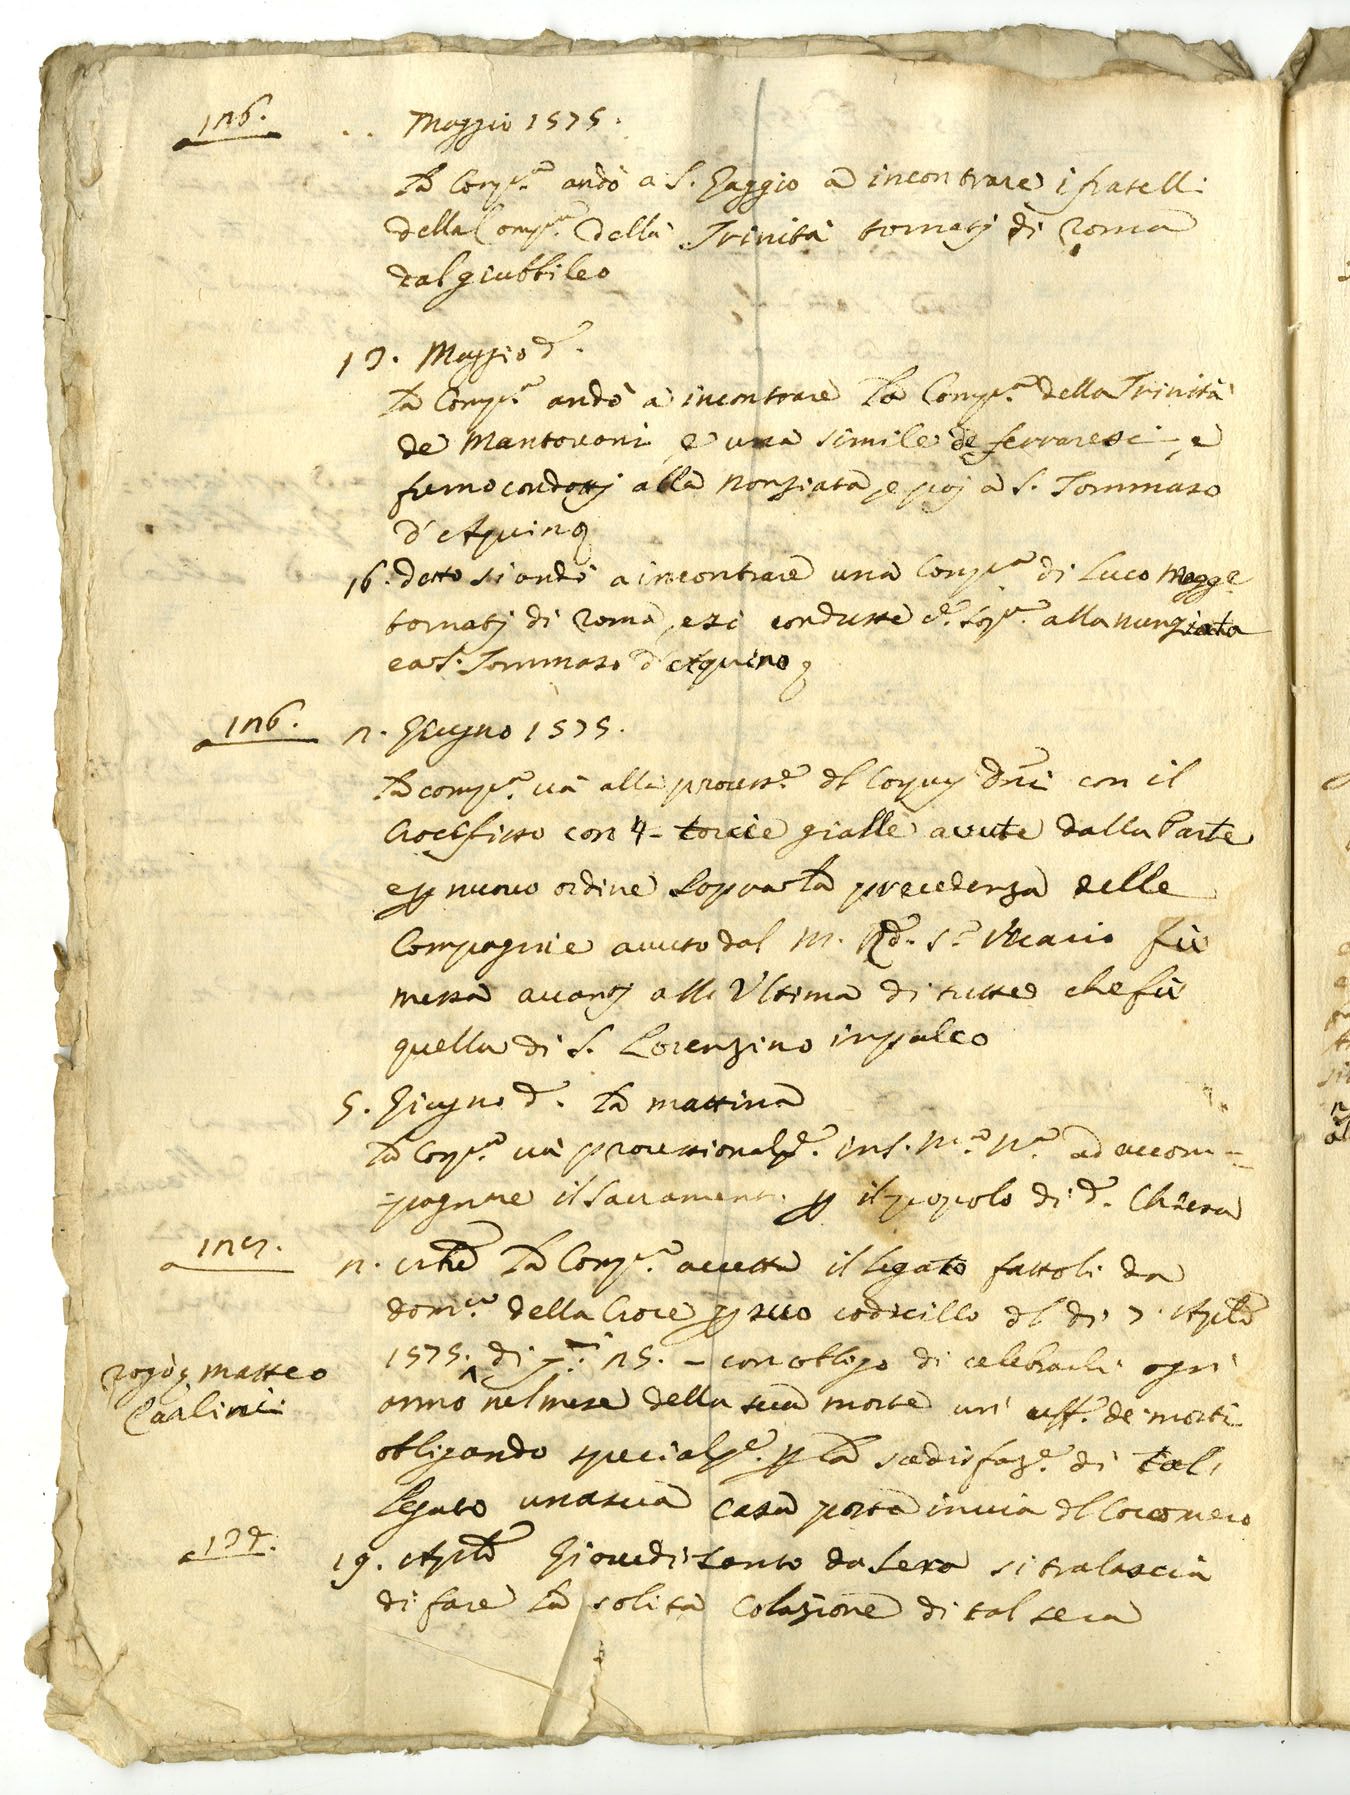 126.
.. Maggio 1575.
La Comp.a andò a S. Gaggio a incontrare i fratelli
della Comp.a della Trinità tornatj di Roma
dal giubbileo
13. Maggio d.o
La Comp.a andò a incontrare La Comp.a della Trinità
de Mantovani, e una simile de ferraresi, e
furno condottj alla Nonziata, e poj a S. Tommaso
d'Aquino
16. detto si andò a incontrare una Comp.a di Luco Magg.e
tornatj di Roma, e si condusse alla Nunziata
e a S. Tommaso d'Aquino
126.
2. Giugno 1575.
La comp.a và alla process.e del Corpus Dni con il
Crocifisso con 4 - torcie gialle avute dalla Parte
e p nuovo ordine Sopra La precedenza delle
Compagnie avuto dal M. Rd.o S.r Vicario fù
messa avantj alla Ultima di tutte che fù
quella di S. Lorenzino in palco
5. Giugno d.o La mattina
La Comp.a và processionalm.e in S. M.a N.a ad accom=
=pagnare il Sacramento p il popolo di d.a Chiesa
127.
La Comp.a accetta il legato fattoli da
dom.co della Croce p suo codicillo del di 7. Aple
1575. di 25. - con obligo di celebrarli ogni
rogò ser Matteo
Carlini
anno nel mese della sua morte un' uff.o de morti
obligando specialm.e p La sodisfaz.e di tal
legato una sua casa posta in via del Cocomero
19. Aple Giovedi Santo da Sera si tralascia
di fare La solita Colazione di tal sera